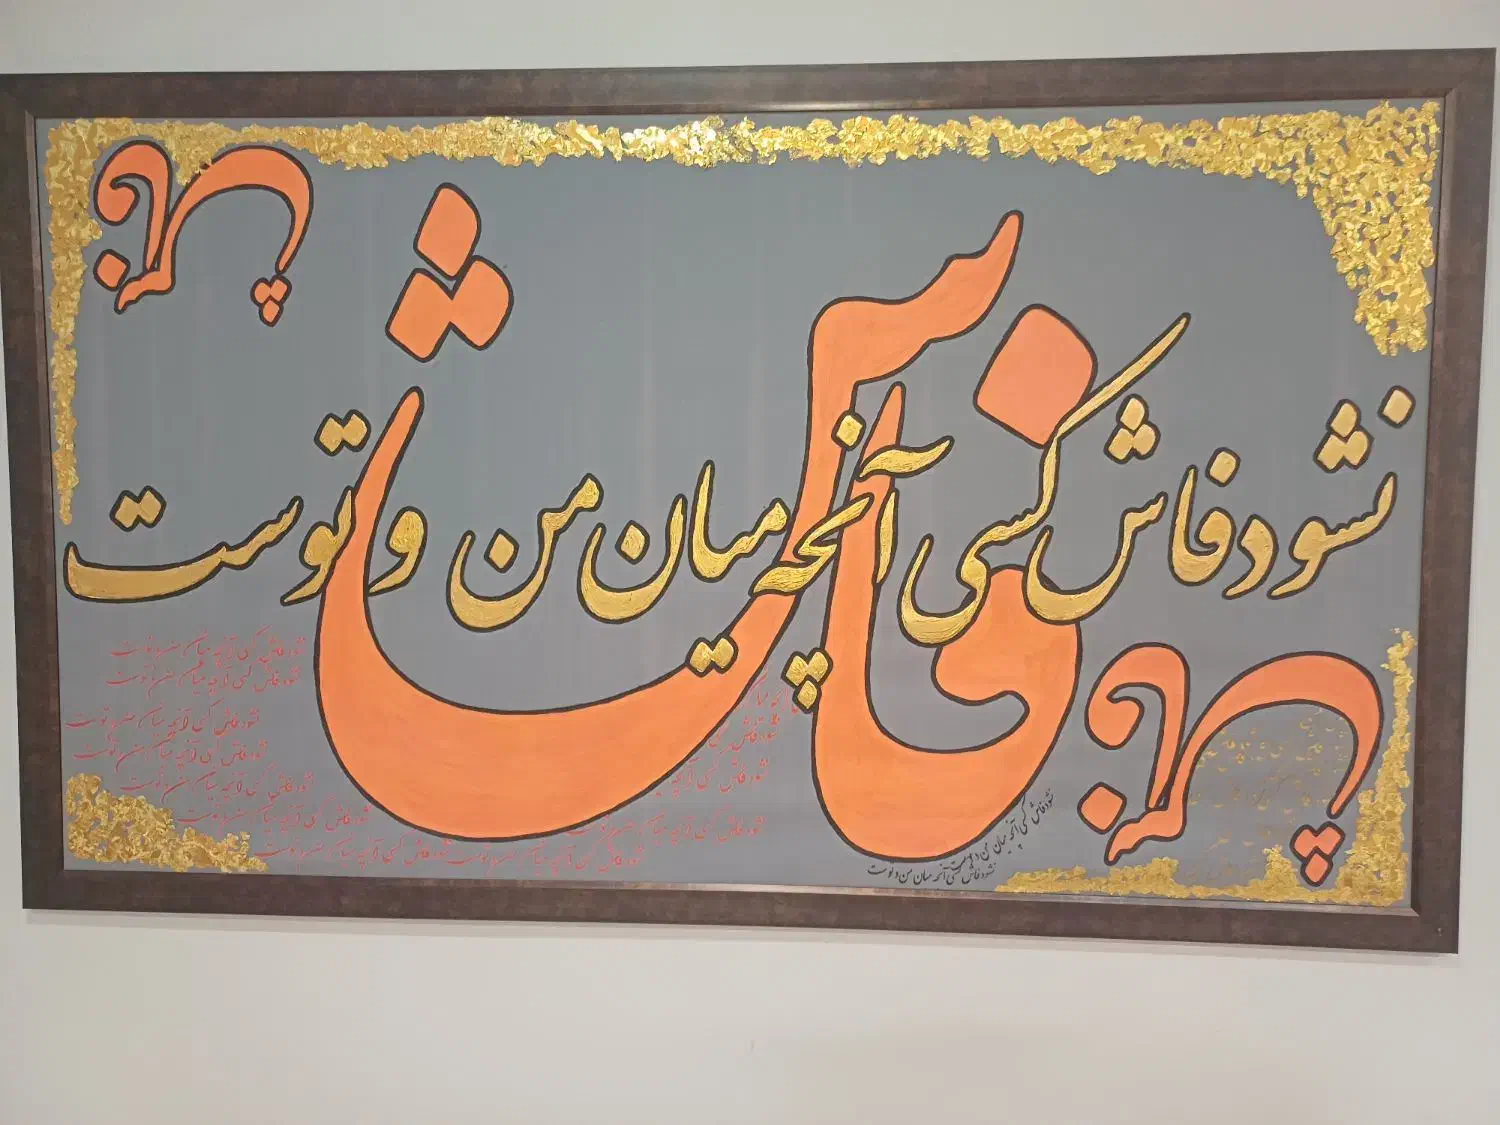 نشود فاش کسی آنچه میان من و توست
فاش
نشود فاش کسی آنچه میان من و توست
نشود فاش کسی آنچه میان من و توست
نشود فاش کسی آنچه میان من و توست
نشود فاش کسی آنچه میان من و توست
نشود فاش کسی آنچه میان من و توست
نشود فاش کسی آنچه میان من و توست
نشود فاش کسی آنچه میان من و توست
نشود فاش کسی آنچه میان من و توست
نشود فاش کسی آنچه میان من و توست
نشود فاش کسی آنچه
نشود فاش کسی آنچه میان من و توست
نشود فاش کسی آنچه میان من و توست